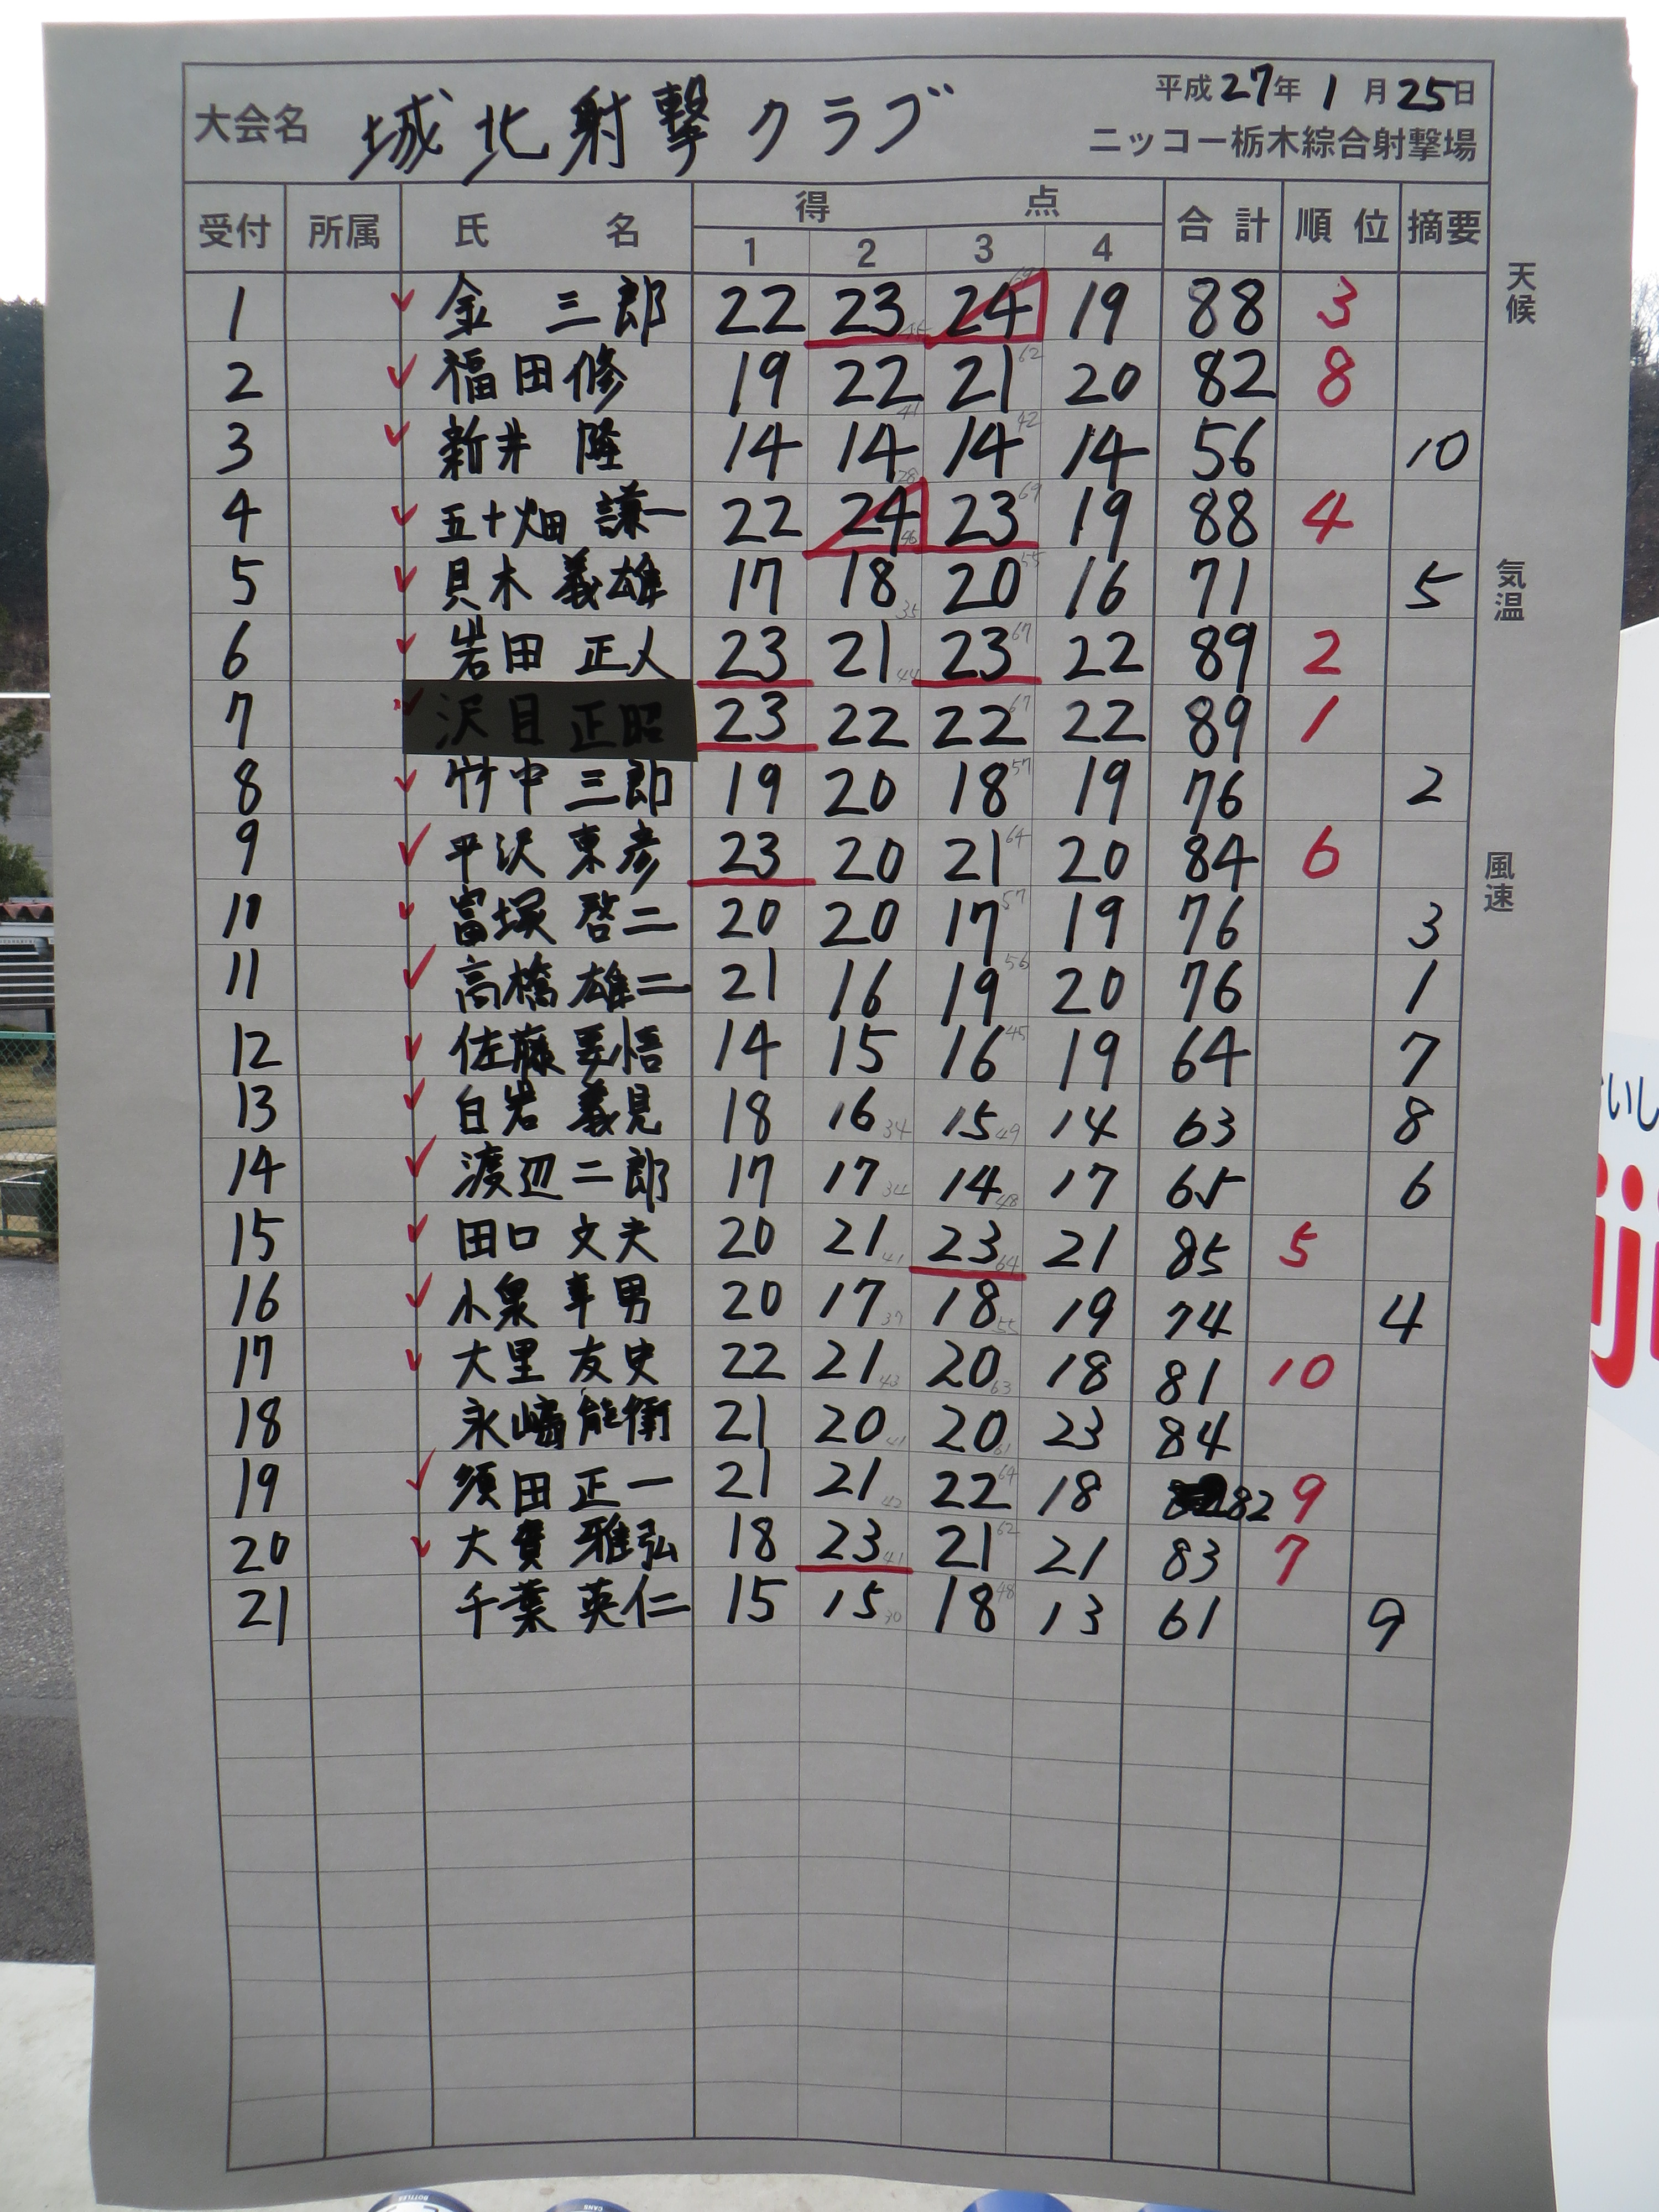 平成27年1月25日
大会名 城北射撃クラブ
ニッコー栃木綜合射撃場
受付 所属 氏名 得点 合計 順位 摘要
1 2 3 4
天候
気温
風速
1 金 三郎 22 23 24 19 88 3
2 福田修 19 22 21 20 82 8
3 新井 隆 14 14 14 14 56 10
4 五十畑 謙一 22 24 23 19 88 4
5 貝木 義雄 17 18 20 16 71 5
6 岩田 正人 23 21 23 22 89 2
7 沢目 正昭 23 22 22 22 89 1
8 竹中 三郎 19 20 18 19 76 2
9 平沢 東彦 23 20 21 20 84 6
10 富塚 啓二 20 20 17 19 76 3
11 高橋 雄二 21 16 19 20 76 1
12 佐藤 要悟 14 15 16 19 64 7
13 白岩 義見 18 16 15 14 63 8
14 渡辺 二郎 17 17 14 17 65 6
15 田口 文夫 20 21 23 21 85 5
16 小泉 幸男 20 17 18 19 74 4
17 大里 友史 22 21 20 18 81 10
18 永嶋 能衛 21 20 20 23 84
19 須田 正一 21 21 22 18 82 9
20 大貫 雅弘 18 23 21 21 83 7
21 千葉 英仁 15 15 18 13 61 9